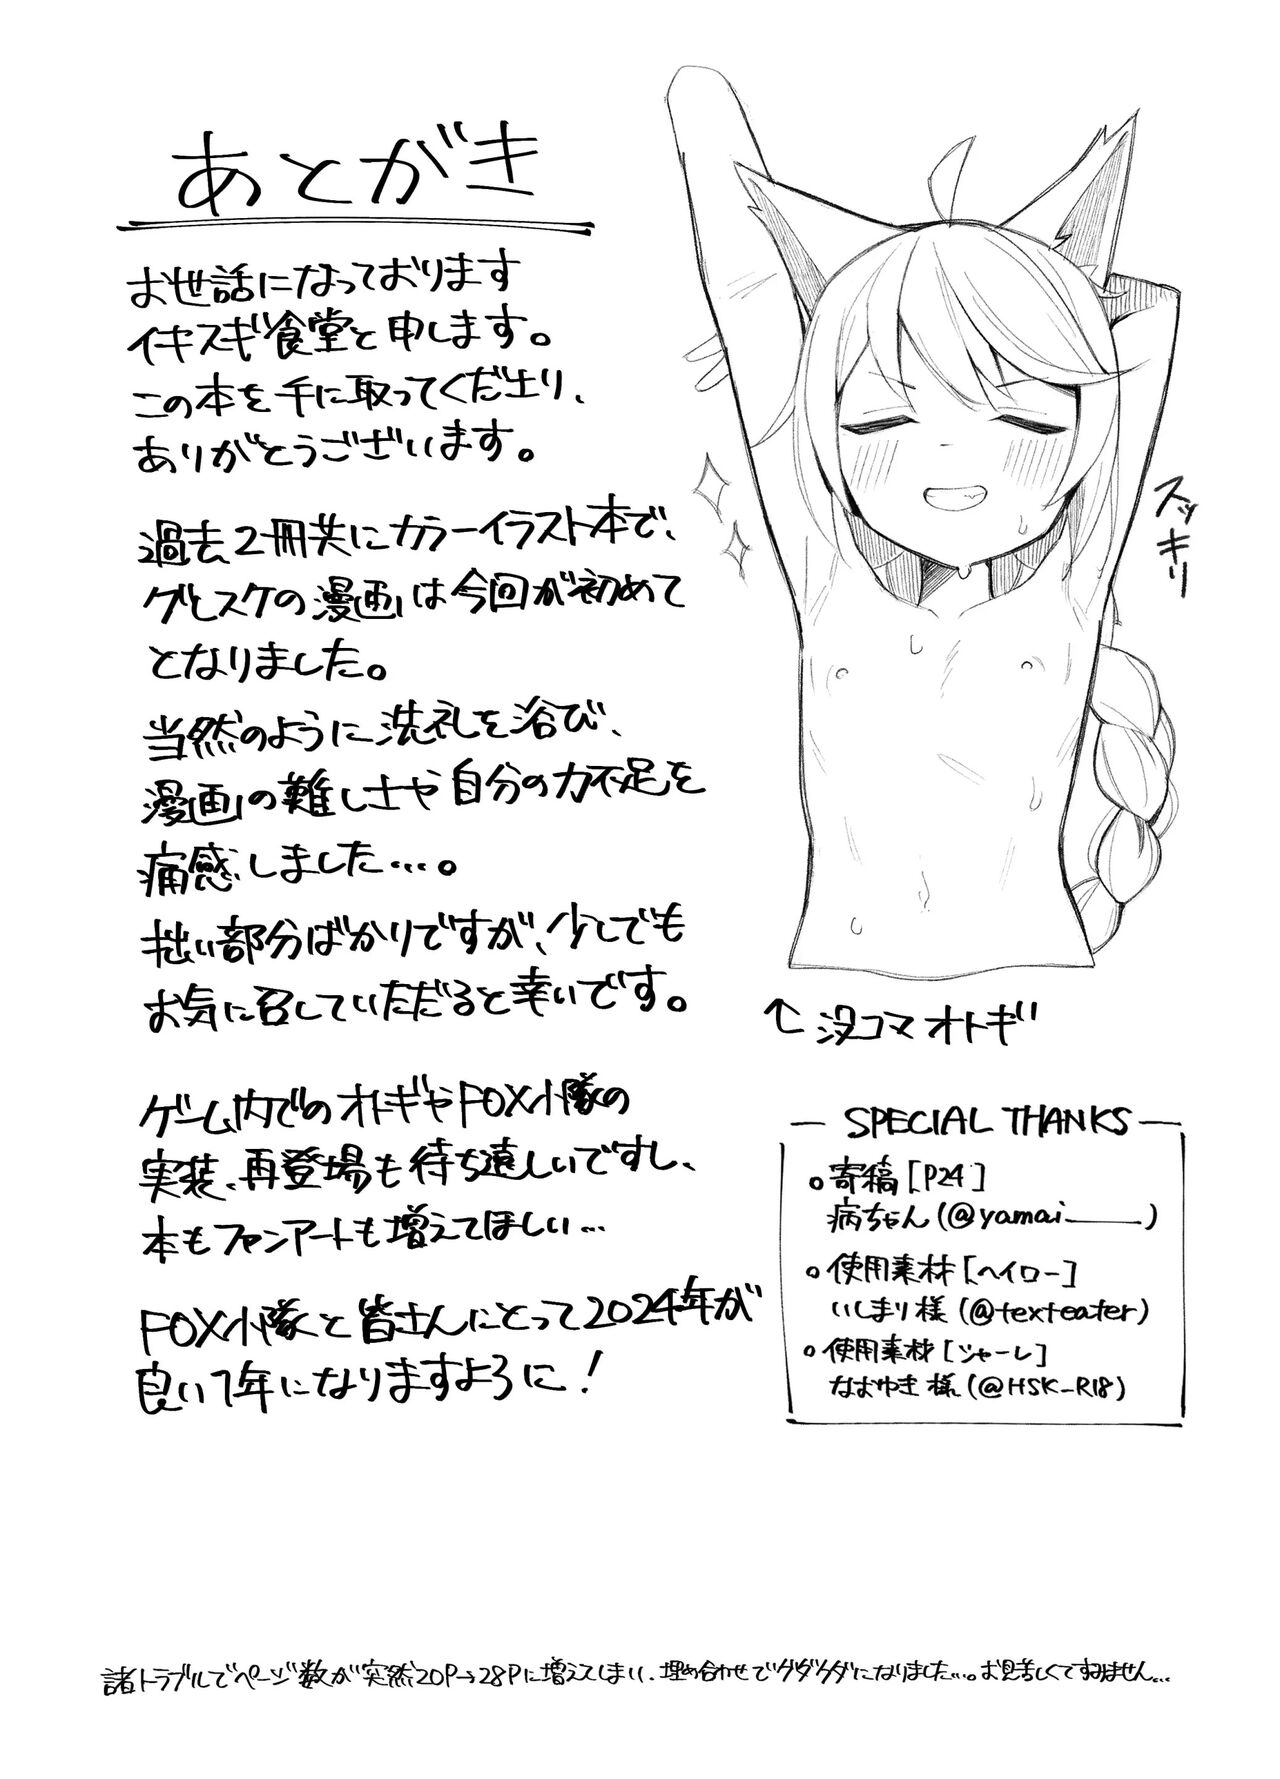 あとがき
お世話になっております
イキスギ食堂と申します。
この本を手に取ってくださり、
ありがとうございます。
過去2冊共にカラーイラスト本で、
グレスケの漫画は今回が初めて
となりました。
当然のように洗礼を浴び、
漫画の難しさや自分の力不足を
痛感しました…。
拙い部分ばかりですが、少しでも
お気に召していただだると幸いです。
ゲーム内でのオトギやFOX小隊の
実装、再登場も待ち遠しいですし、
本もファンアートも増えてほしい…
FOX小隊と皆さんにとって2024年が
良い1年になりますように!
スッキリ
↑没コマオトギ
SPECIAL THANKS
。寄稿[P24]
病ちゃん(@yamai______)
。使用素材[ヘイロー]
いしまり様(@texteater)
。使用素材[シャーレ]
なおゆき様(@HSK_R18)
諸トラブルでページ数が突然20P→28Pに増えてしまい、埋め合わせでグダグダになりました…。お見苦しくてすみません…